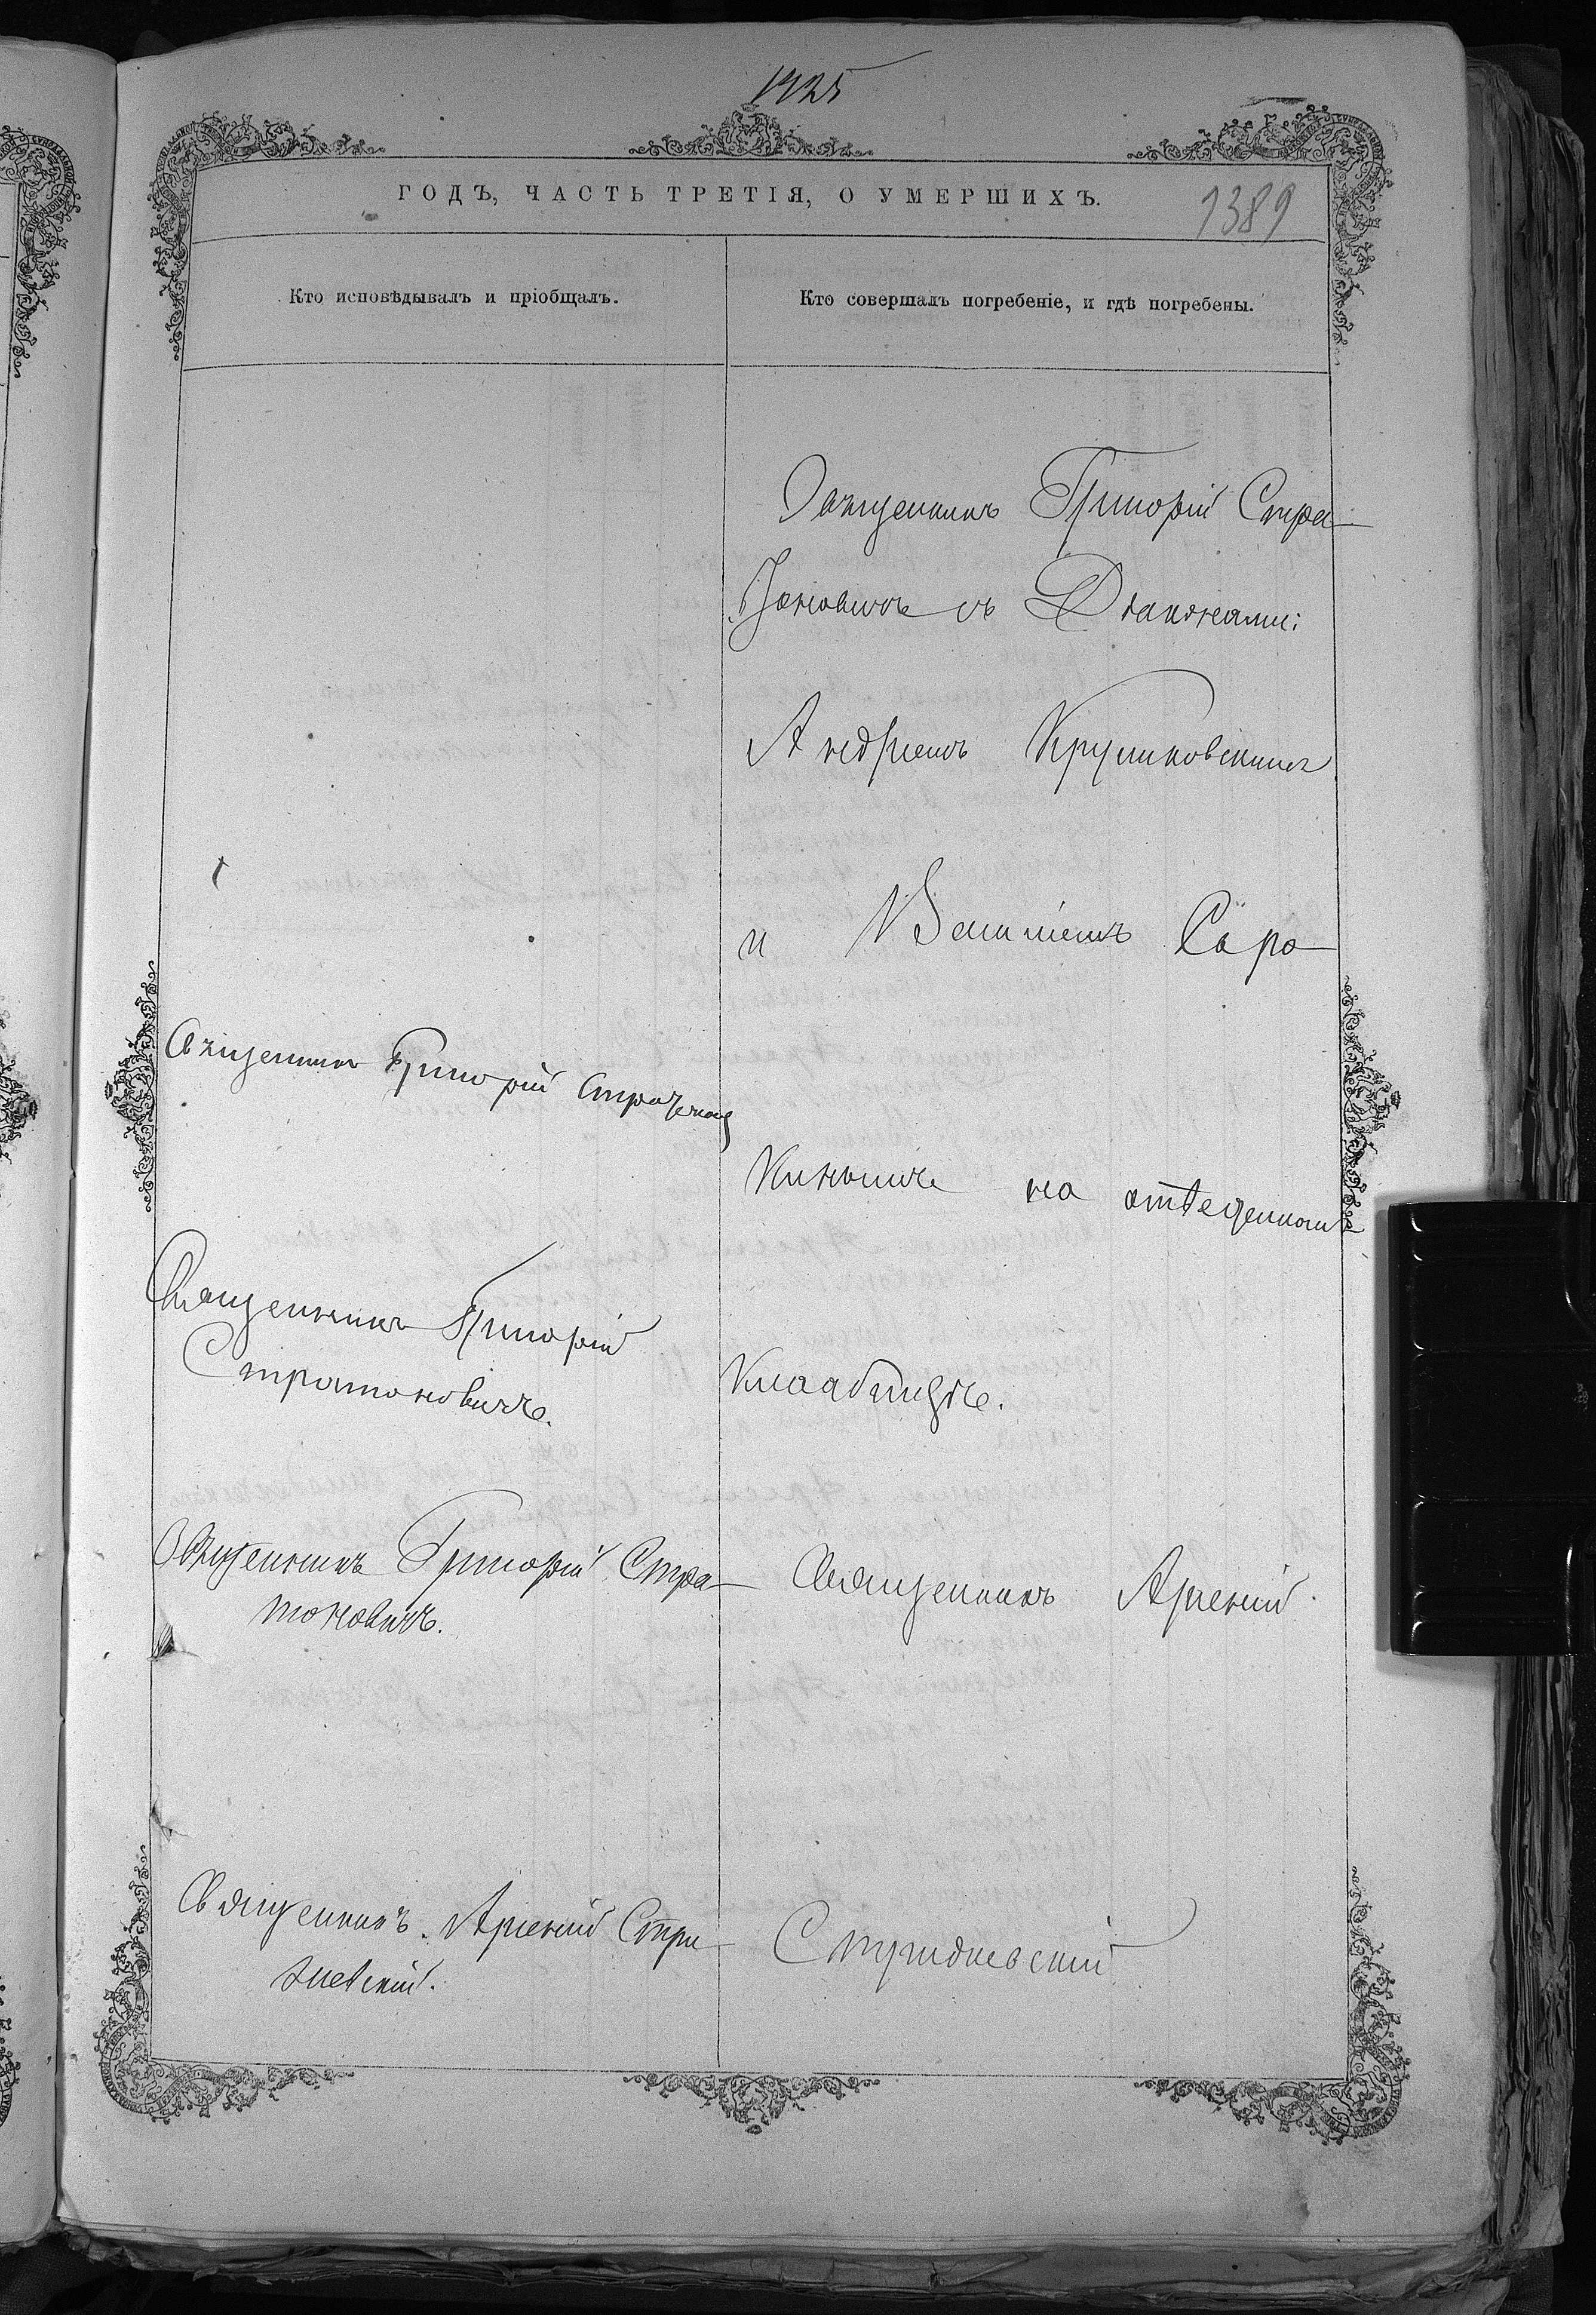 1425
ГОДЪ, ЧАСТЬ ТРЕТІЯ, О УМЕРШИХЪ.
1389
Кто исповѣдывалъ и пріобщалъ.
Кто совершалъ погребеніе, и гдѣ погребены.
Священникъ Григорій Стра-
тоновичъ съ Діаконами:
Андреемъ Крушковскимъ
и Василіемъ Саро-
кинымъ на отведенномъ
кладбищѣ.
Священникъ Арсеній
Стридневскій
Священникъ Григорій
Священникъ Григорій
Стратоновичъ.
Священникъ Григорій Стра-
тоновичъ.
Священникъ Арсеній Стри-
дневскій.